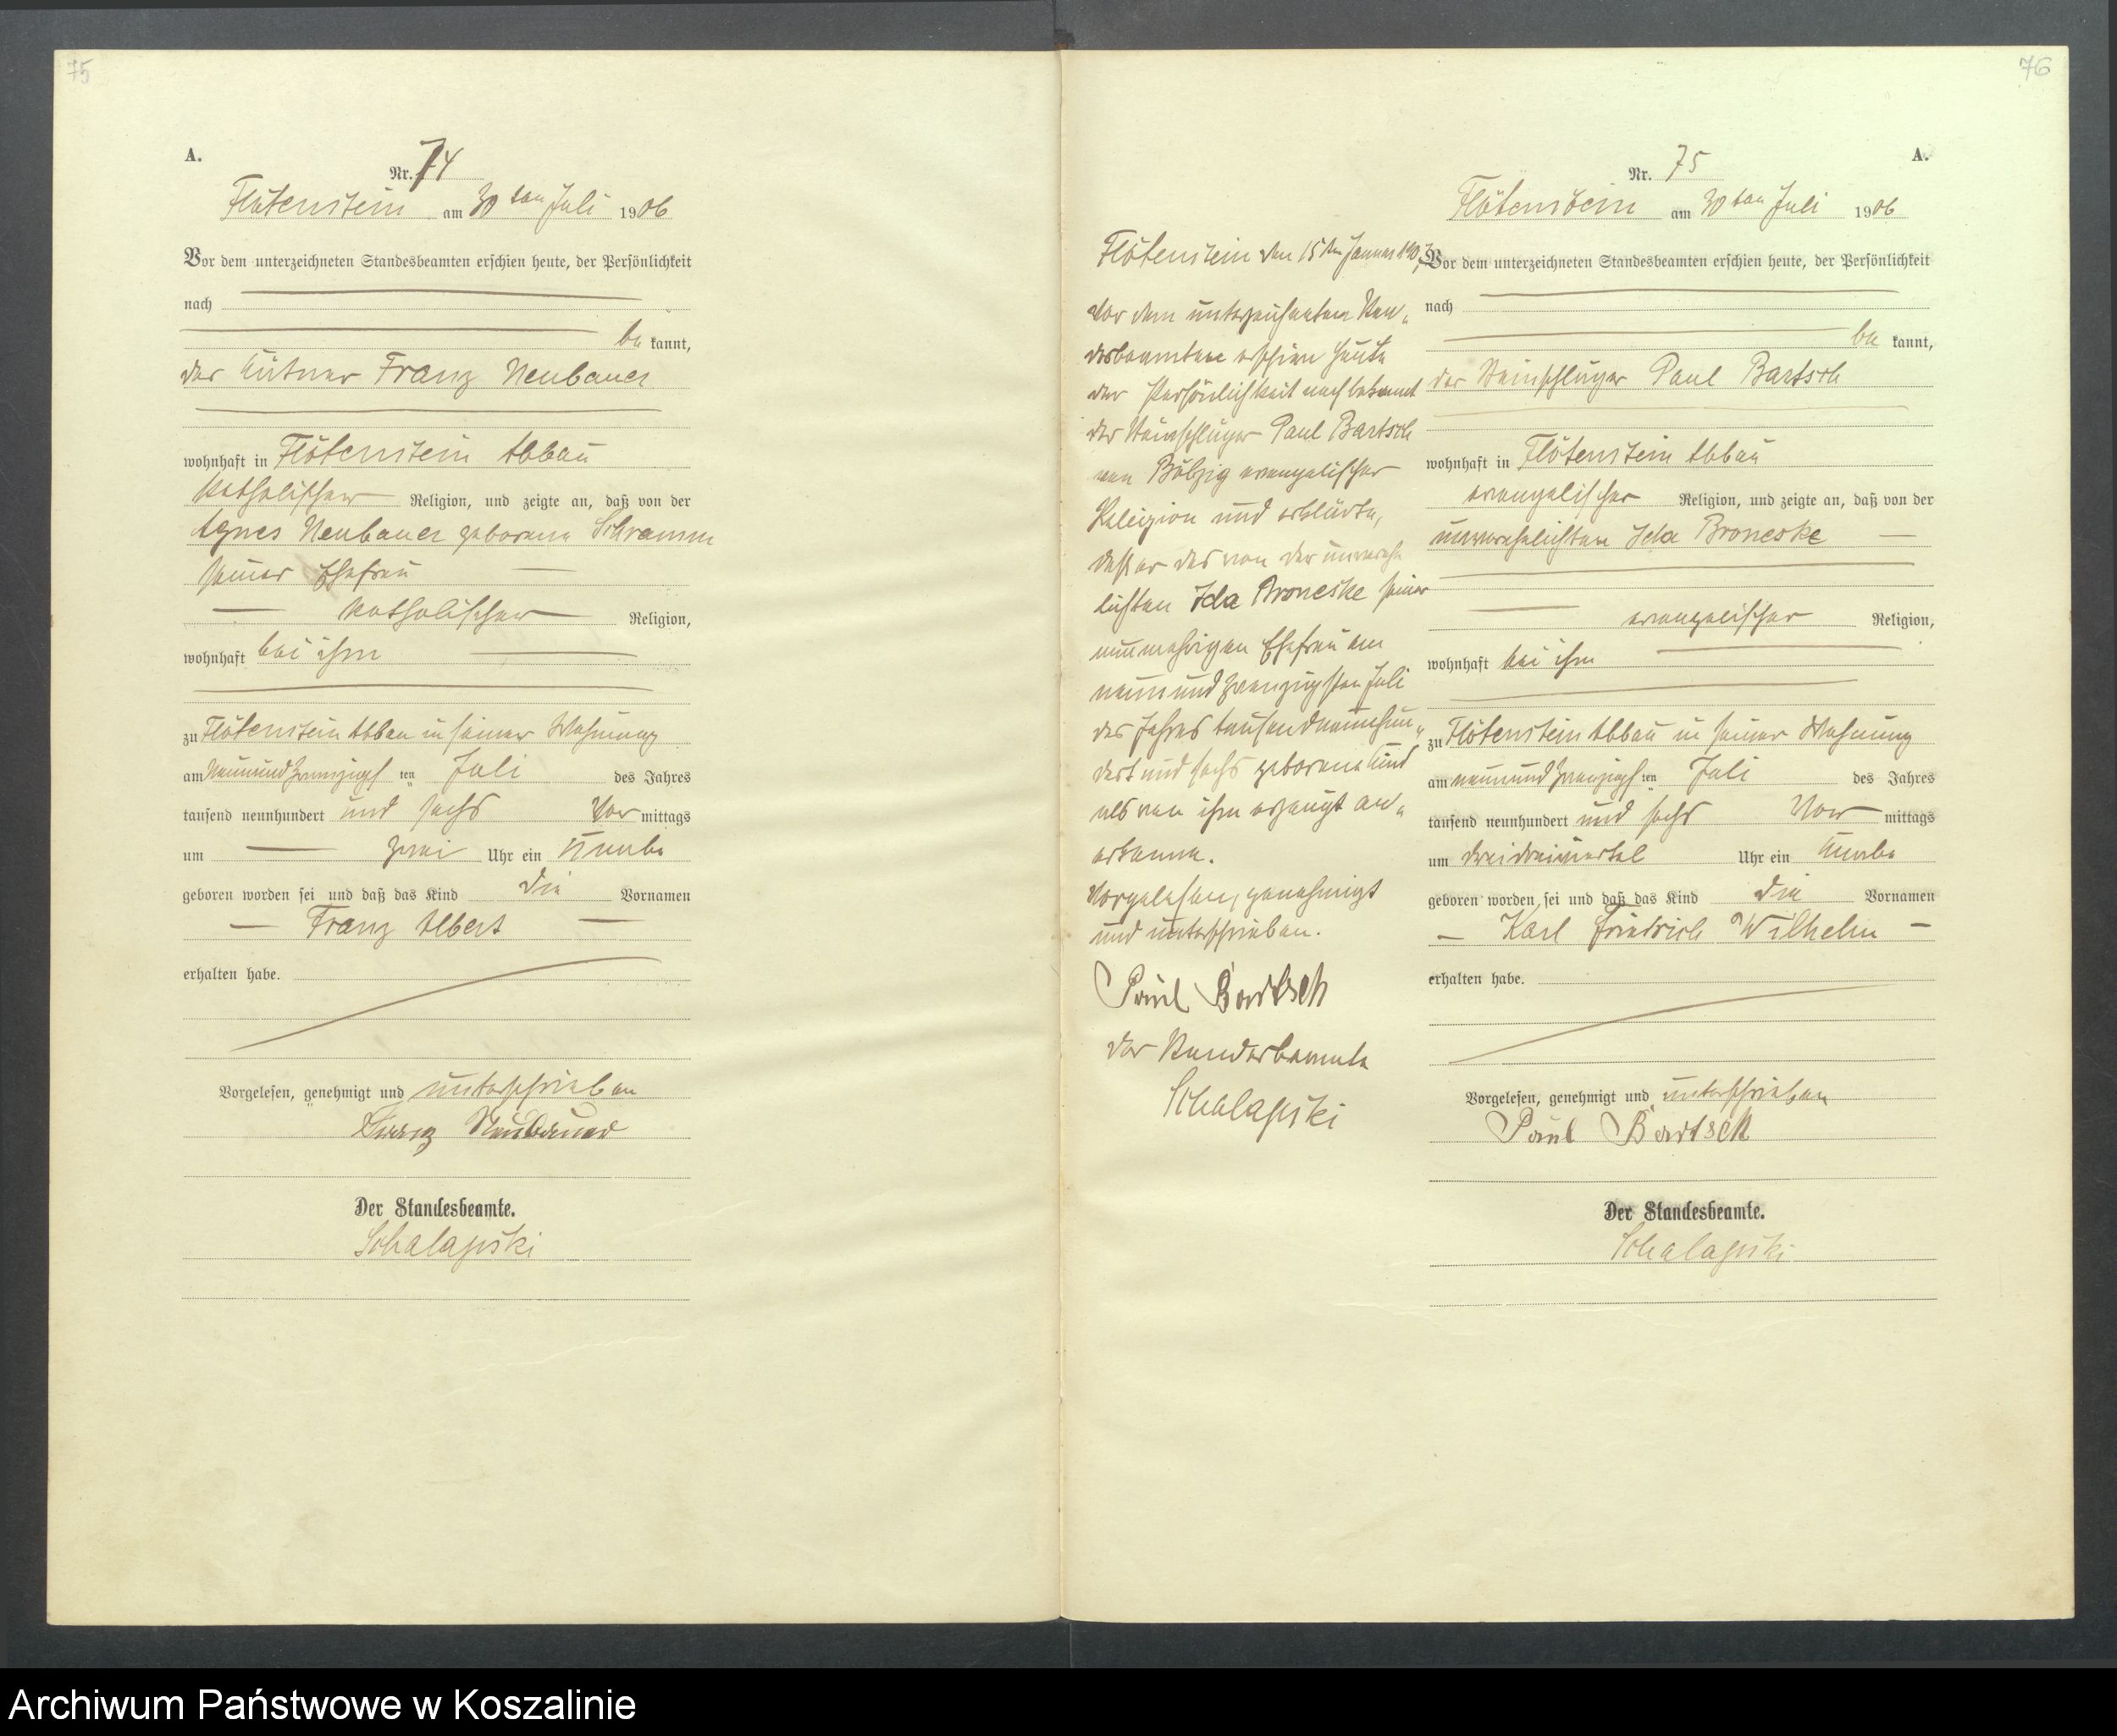 75
A.
Nr. 74
Flötenstein am 30ten Juli 1906
Vor dem unterzeichneten Standesbeamten erschien heute, der Persönlichkeit
nach
be kannt,
der Kätner Franz Neubauer
wohnhaft in Flötenstein Abbau
katholischer Religion, und zeigte an, daß von der
Agnes Neubauer geborene Schramm
seiner Ehefrau
katholischer Religion,
wohnhaft bei ihm
zu Flötenstein Abbau in seiner Wohnung
am neunundzwanzigsten Juli des Jahres
tausend neunhundert und sechs Vor mittags
um zwei Uhr ein Knabe
geboren worden sei und daß das Kind die Vornamen
Franz Albert
erhalten habe.
Vorgelesen, genehmigt und unterschrieben
Franz Neubauer
Der Standesbeamte.
Schalapski
76
A.
Nr. 75
Flötenstein am 30ten Juli 1906
Vor dem unterzeichneten Standesbeamten erschien heute, der Persönlichkeit
nach
be kannt,
der Steinschläger Paul Bartsch
wohnhaft in Flötenstein Abbau
evangelischer Religion, und zeigte an, daß von der
unverehelichten Ida Broneske
evangelischer Religion,
wohnhaft bei ihm
zu Flötenstein Abbau in seiner Wohnung
am neunundzwanzigsten Juli des Jahres
tausend neunhundert und sechs Vor mittags
um dreidreiviertel Uhr ein Knabe
geboren worden sei und daß das Kind die Vornamen
Karl Friedrich Wilhelm
erhalten habe.
Vorgelesen, genehmigt und unterschrieben
Paul Bartsch
Der Standesbeamte.
Schalapski
Flötenstein den 15ten Januar 1907
Vor dem unterzeichneten Stan„
desbeamten erschien heute
der Persönlichkeit nach bekannt
der Steinschläger Paul Bartsch
von Bölzig evangelischer
Religion und erklärte,
daß er das von der unverehe
lichten Ida Broneske seiner
nunmehrigen Ehefrau am
neunundzwanzigsten Juli
des Jahres tausendneunhun„
dert und sechs geborene Kind
als von ihm erzeugt an„
erkenne.
Vorgelesen, genehmigt
und unterschrieben.
Paul Bartsch
Der Standesbeamte
Schalapski
Archiwum Państwowe w Koszalinie